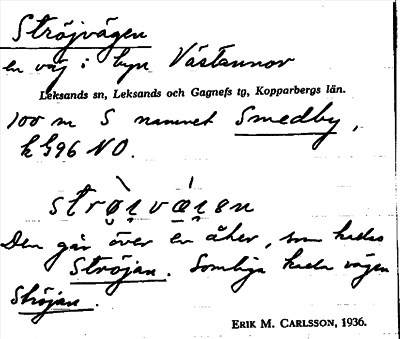 Ströjvägen
en väg i byn Västannor
Leksands sn, Leksands och Gagnefs tg, Kopparbergs län.
100 m S namnet Smedby,
k G96 NO.
Den går över en åker, som kallas
Ströjan. Somliga kalla vägen
Ströjan.
ERIK M. CARLSSON, 1936.